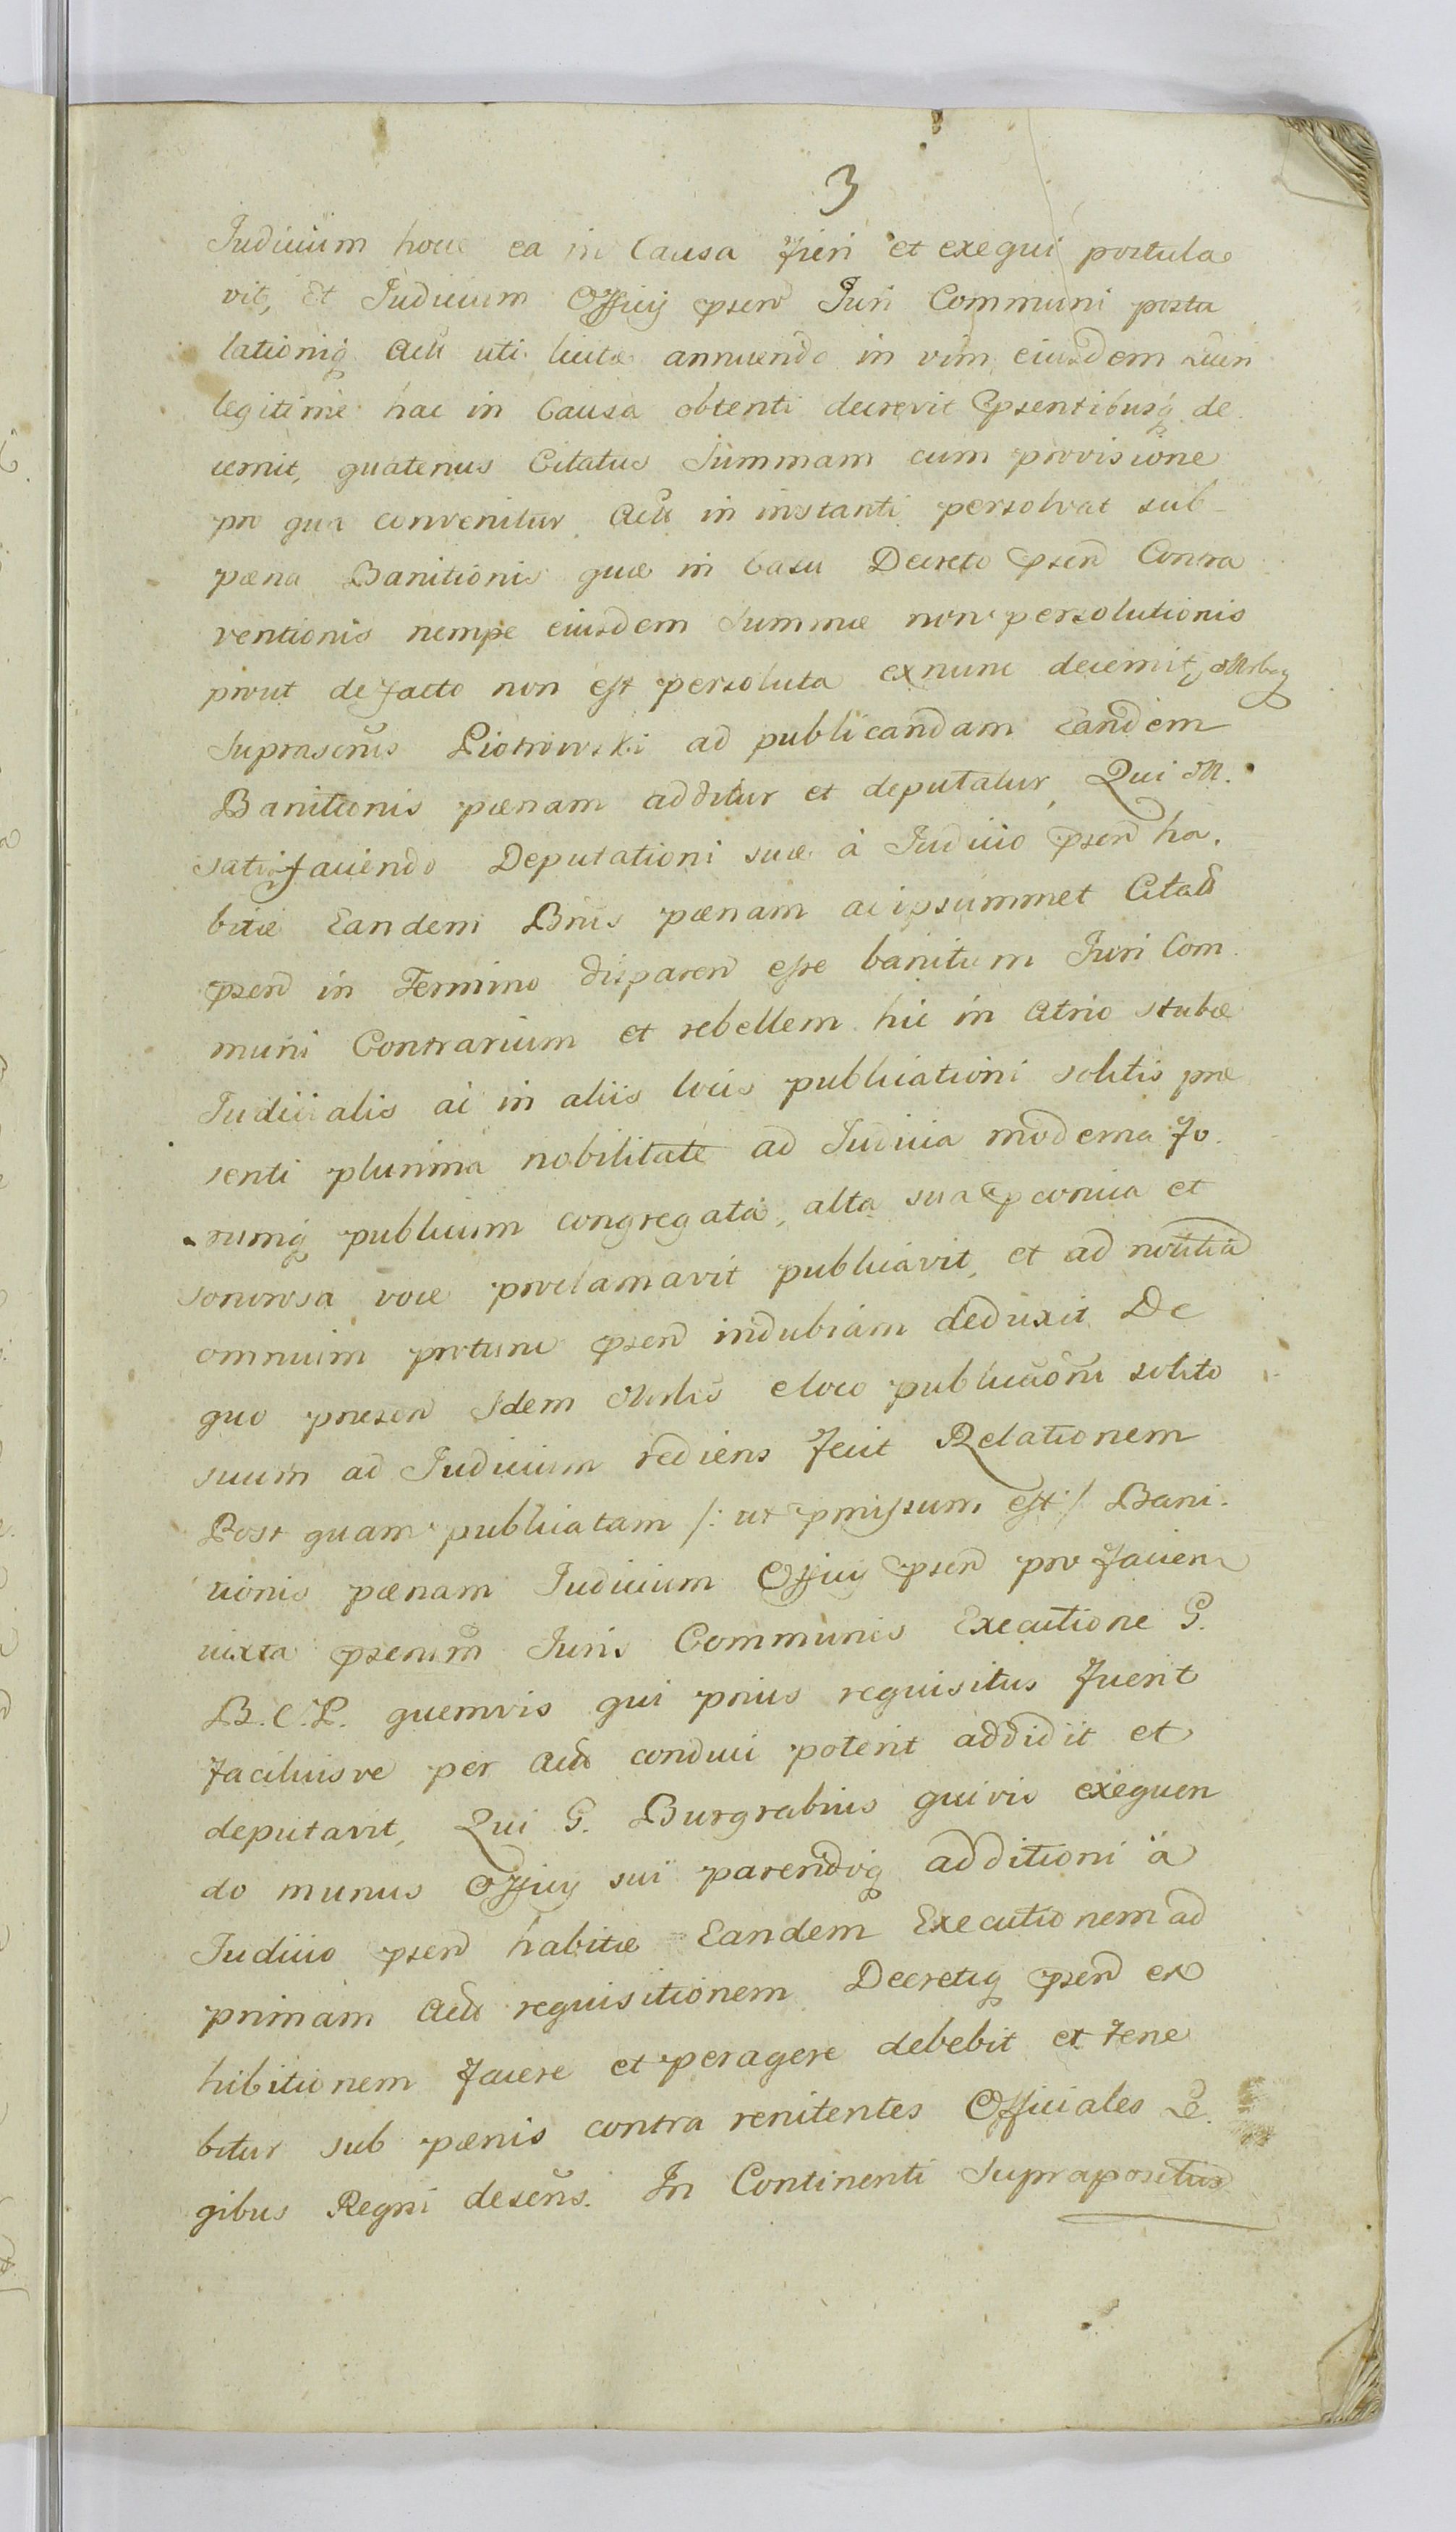 3
Judicium hocce ea in Causa fieri et exequi postula
vit, Et Judicium Officij pñsen Juri Communi postu
lationiq Actŭ uti licitæ annuendo in vim eiusdem Lucri
legitimè hac in Causa obtenti decrevit Pñsentibusq de
cernit, quatenus Citatus Summam cum provisione
pro qua convenitur Actŭ in instanti persolvat sub
pæna Banitionis quæ in Casu Decreto pñsen Contra
ventionis nempe eiusdem Summæ non persolutionis
prout de facto non est persoluta exnunc decernit,
Suprascriũs Piotrowski ad publicandam Eandem
Banitionis pænam additur et deputatur, Qui M.
satisfaciendo Deputationi suæ à Judicio pñsen ha.
bitæ Eandem Bnis pænam ac ipsummet Citatũ
pñsen in Termino disparen esse banitum Juri Com
muni Contrarium et rebellem hic in Atrio stubæ
Judicialis ac in aliis locis publicationi solitis præ
senti plurima nobilitate ad Judicia moderna fo.
rumq publicum congregata, alta sua præconica et
sonorosa voce proclamavit publicavit, et ad notitiã
omnium protunc pñsen indubiam deduxit De
quo præsen Idem Mrlis e loco publicaõni solito
suum ad Judicium rediens fecit Relationem
Post quam publicatam /: ut pmissum est :/ Bani.
tionis pænam Judicium Officij pñsen pro facien
iuxta pscriptũm Juris Communis Executione G.
B. C. P. quemvis qui prius requisitus fuerit
faciliusve per Actŭ conduci poterit addidit et
deputavit, Qui G. Burgrabius quivis exequen
do munus Officij sui parendoq additioni à
Judicio pñsen habitæ Eandem Executionem ad
primam Actŭ requisitionem Decretiq pñsen ex
hibitionem facere et peragere debebit et tene
bitur sub pænis contra renitentes Officiales Le.
gibus Regni descris. In Continenti Suprapositus